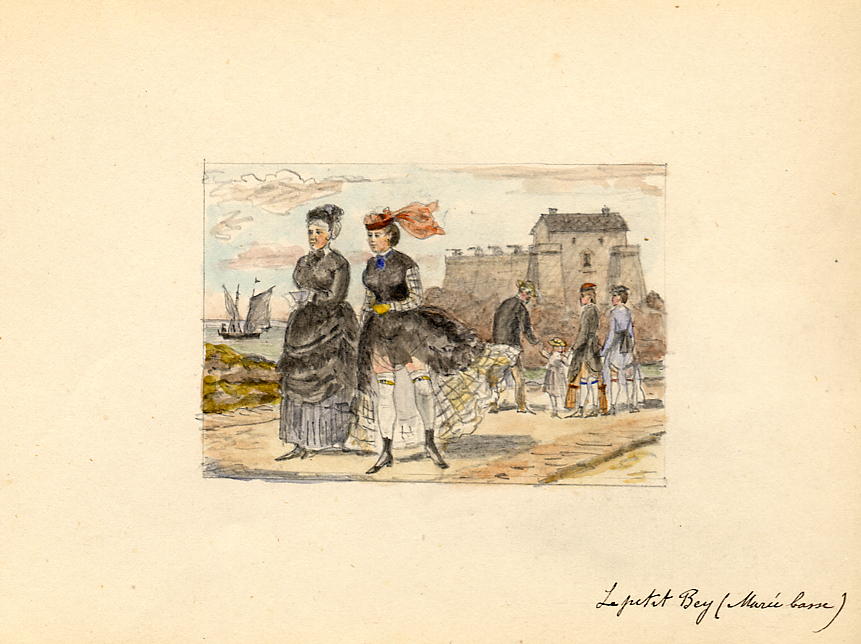 Le petit Bey (Marée basse)